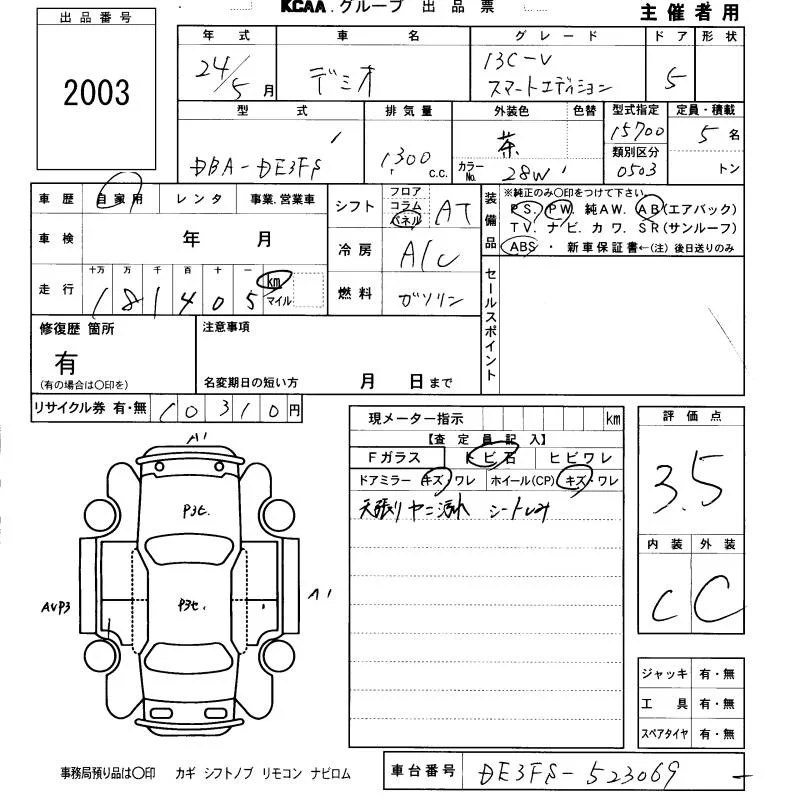 KCAA.グループ 出品票
主催者用
出品番号
2003
年式 車名 グレード ドア 形状
24/5月 デミオ 13C-V スマートエディション 5
型式 排気量 外装色 色替 型式指定 定員・積載
DBA-DE3FS 1300 c.c. 茶 カラーNo. 28W 15700 5名
類別区分 0503 トン
車歴 自家用 レンタ 事業.営業車
シフト フロア コラム パネル AT
装備品 ※純正のみ〇印をつけて下さい
PS. PW. 純AW. AB(エアバック)
TV. ナビ. カワ. SR(サンルーフ)
ABS ・ 新車保証書←(注) 後日送りのみ
車検 年 月
冷房 A/C
走行 十万 万 千 百 十 一 km マイル
181405
燃料 ガソリン
セールスポイント
修復歴 箇所
有
(有の場合は〇印を)
注意事項
名変期日の短い方 月 日まで
リサイクル券 有・無 10310円
現メーター指示 km
【査定員記入】
Fガラス トビ石 ヒビワレ
ドアミラー キズ・ワレ ホイール(CP) キズ・ワレ
天張りヤニ汚れ シートしみ
評価点
3.5
内装 外装
C C
A1
P3ヒ.
P3ヒ.
AVP3
A1
ジャッキ 有・無
工具 有・無
スペアタイヤ 有・無
事務局預り品は〇印 カギ シフトノブ リモコン ナビロム
車台番号 DE3FS-523069